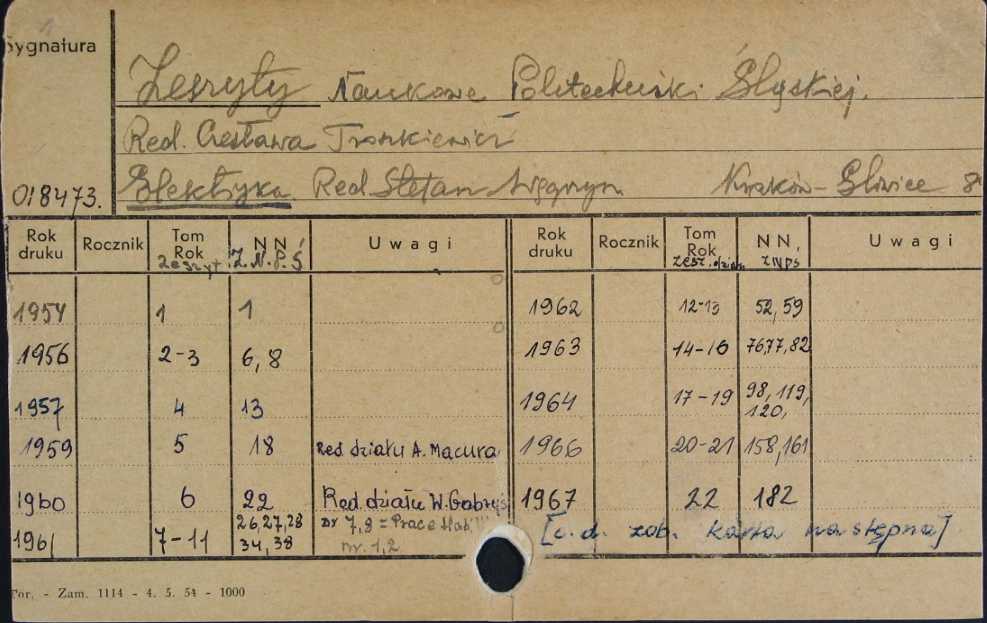 Sygnatura
Zeszyty Naukowe Politechniki Śląskiej.
Red. Czesława Troszkiewicz
018473. Elektryka Red. Stefan Węgrzyn Kraków - Gliwice 8°
Rok druku Rocznik Tom Rok Zeszyt N N Z.N.P.Ś Uwagi Rok druku Rocznik Tom Rok zesz. dział. N N, ZNPS Uwagi
1954 1 1 1962 12-13 52, 59
1956 2-3 6, 8 1963 14-16 76,77, 82
1957 4 13 1964 17-19 98, 119, 120,
1959 5 18 Red. działu A. Macura 1966 20-21 158, 161
1960 6 22 Red. działu W. Gabryś 1967 22 182
1961 7-11 26, 27, 28 34, 38 nr 7, 9 = Prace nr. 1, 2 [c.d. zob. karta następna]
Tor. - Zam. 1114 - 4. 5. 54 - 1000